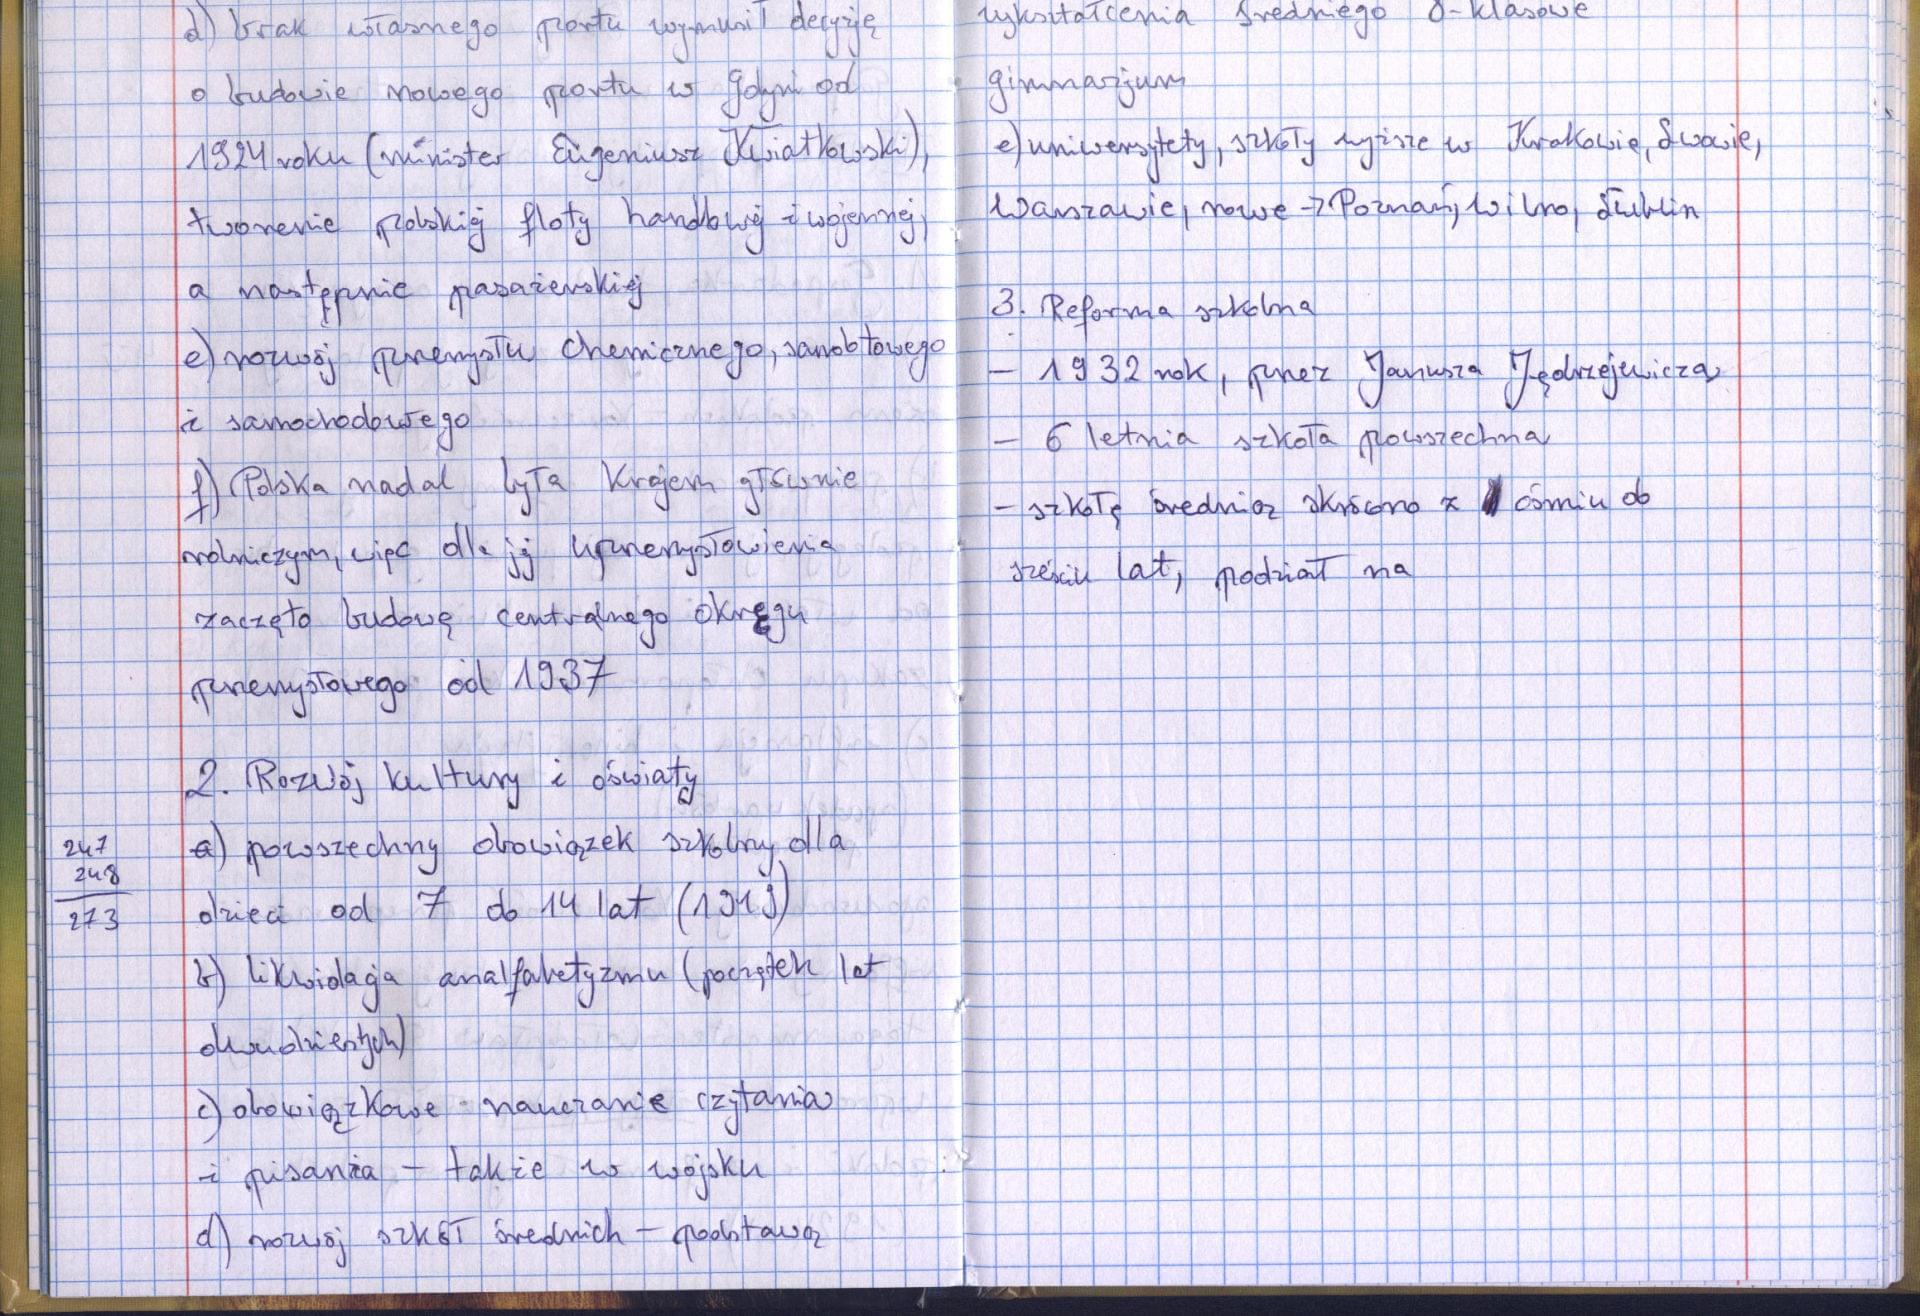 d) brak własnego portu wymusił decyzję
o budowie nowego portu w Gdyni od
1924 roku (minister Eugeniusz Kwiatkowski),
tworzenie polskiej floty handlowej i wojennej,
a następnie pasażerskiej
e) rozwój przemysłu chemicznego, samolotowego
i samochodowego
f) Polska nadal była krajem głównie
rolniczym, więc dla jej uprzemysłowienia
zaczęto budowę centralnego okręgu
przemysłowego od 1937
2. Rozwój kultury i oświaty
247
248
273
a) powszechny obowiązek szkolny dla
dzieci od 7 do 14 lat (1919)
b) likwidacja analfabetyzmu (początek lat
dwudziestych)
c) obowiązkowe nauczanie czytania
i pisania – także w wojsku
d) rozwój szkół średnich – podstawą
wykształcenia średniego 8-klasowe
gimnazjum
e) uniwersytety, szkoły wyższe w Krakowie, Lwowie,
Warszawie, nowe → Poznań, Wilno, Lublin
3. Reforma szkolna
– 1932 rok, przez Janusza Jędrzejewicza
– 6 letnia szkoła powszechna
– szkołę średnią skrócono z ośmiu do
sześciu lat, podział na